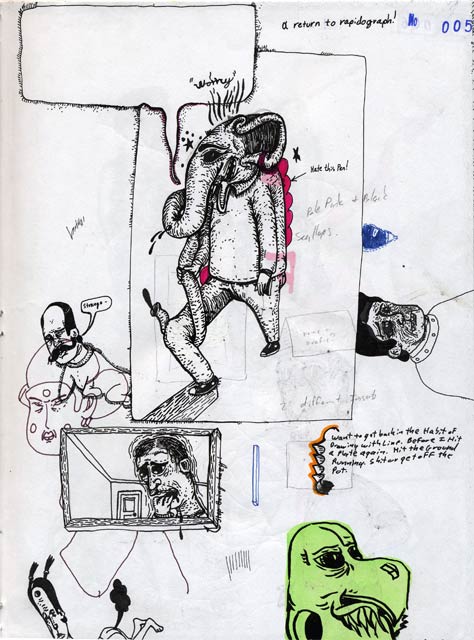 a return to rapidograph!
No 005
"Worry"
Hate this Pen!
Pale Pink + Black
Strange.
different
want to get back in the Habit of
Drawing with Line. Before I Hit
a Plate again. Hit the Ground
Running. Shit or get off the
Pot.